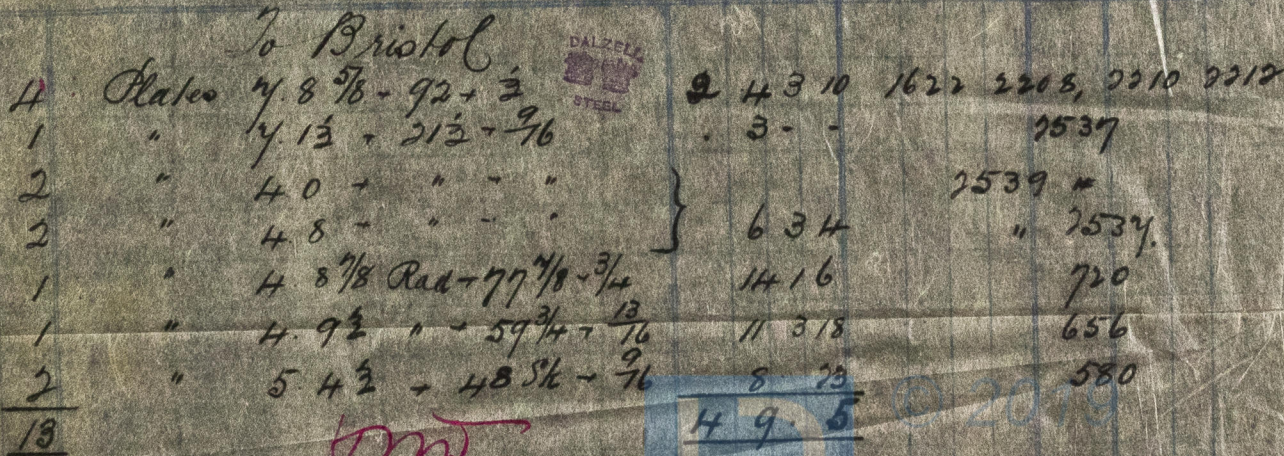 To Bristol
DALZELL
STEEL
4 Plates 7. 8 5/8 - 92 + 1/2 2 4 3 10 1622 2208, 2210 2212
1 " 7. 1 1/2 - 21 1/2 - 9/16 . 3 - - 2537
2 " 4 0 - " - " 2539 "
2 " 4. 8 - " - " } 6 3 4 " 2537.
1 " 4. 8 7/8 Rad - 77 7/8 - 3/4 14 1 6 720
1 " 4. 9 1/2 " - 59 3/4 - 13/16 11 3 18 656
2 " 5. 4 1/2 - 48 Sk - 9/16 8 - 23 580
13 4 9 . 5
© 2019